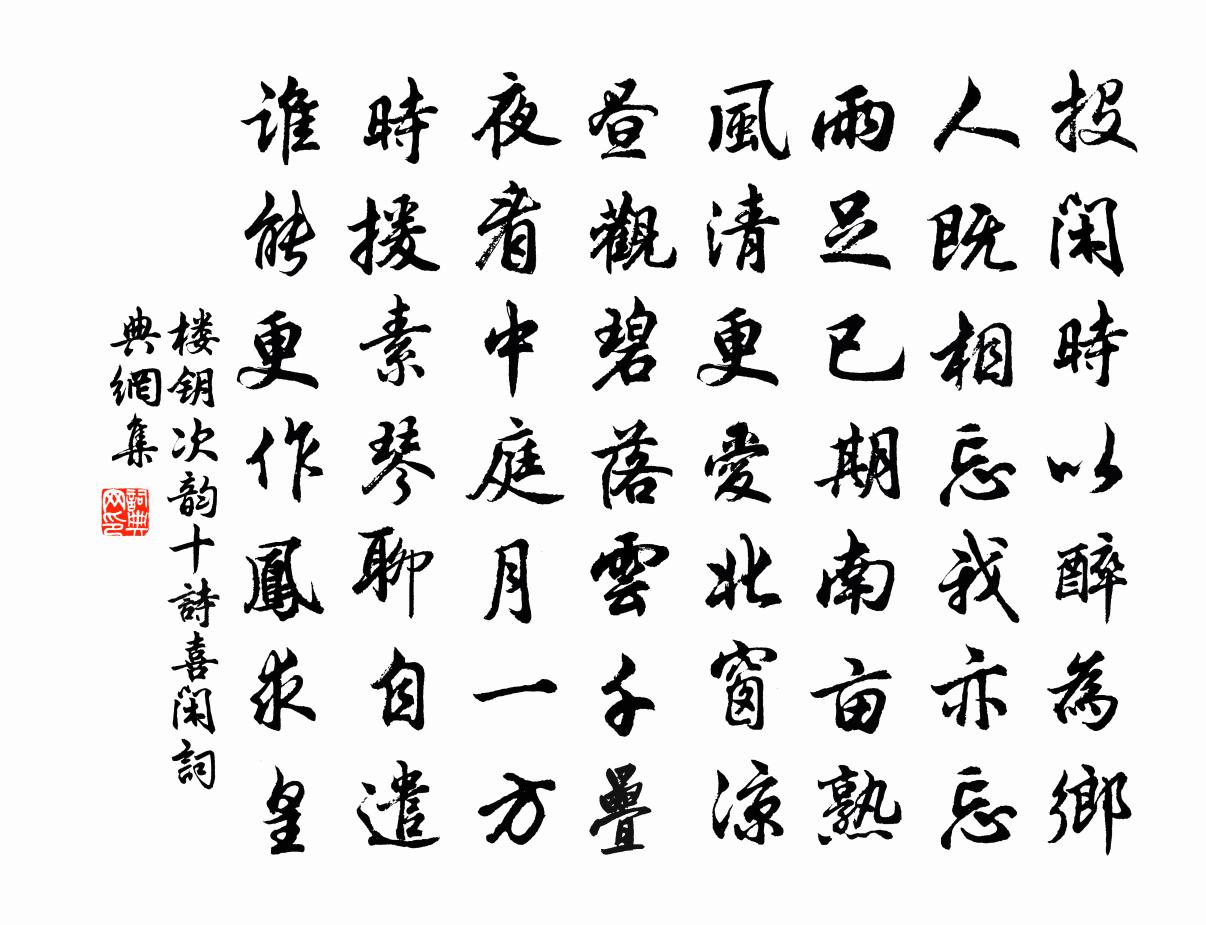 投閑時以醉為鄉
人既相忘我亦忘
雨足已期南亩熟
風清更愛北窗涼
昼觀碧落雲千疊
夜看中庭月一方
時援素琴聊自遣
誰能更作鳳求皇
楼钥次韵十詩喜閑詞
典網集
詞典
网印